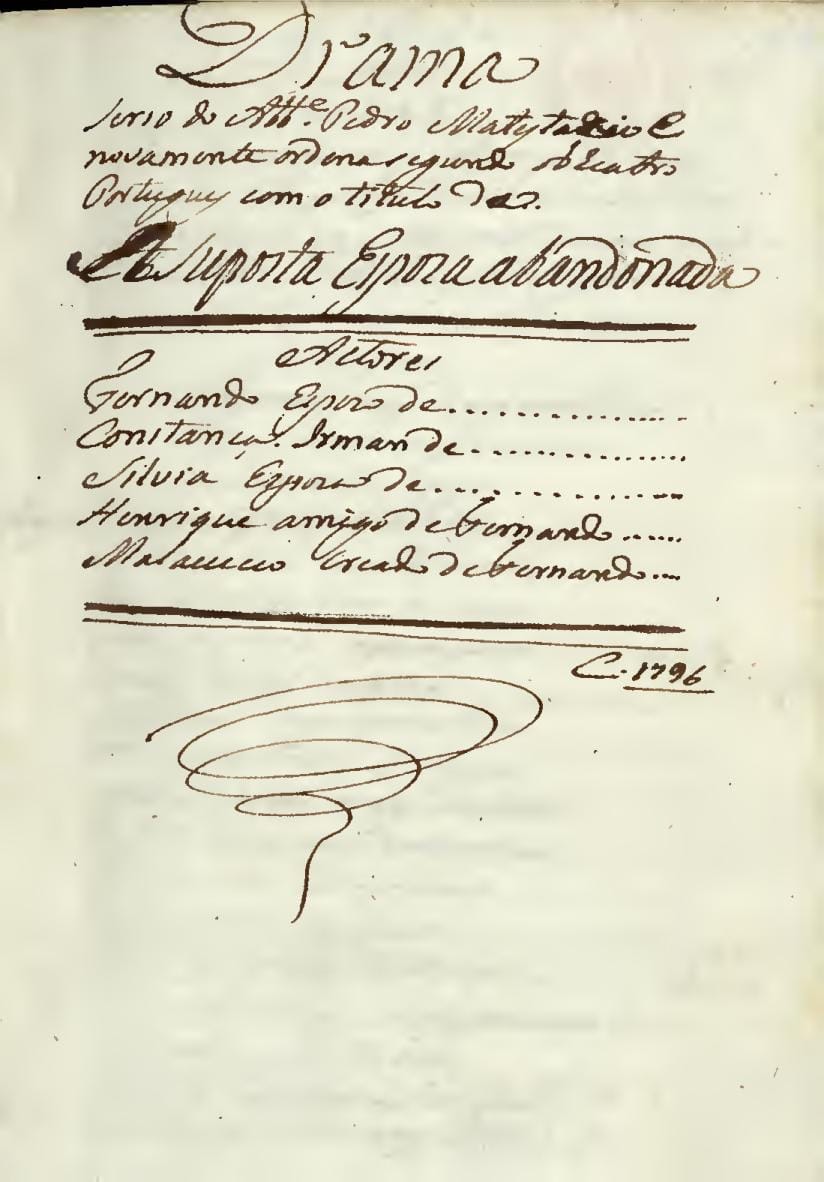 Drama
serio do Abb.e Pedro Matestazio e
novamente ordena segundo o Teatro
Portuguez com o titulo de
A Suposta Espoza abandonada
Actores
Fernando Espozo de..................
Constança. Irman de..................
Silvia Espoza de..................
Henrique amigo de Fernando......
Matacucio Creado de Fernando....
C. 1796